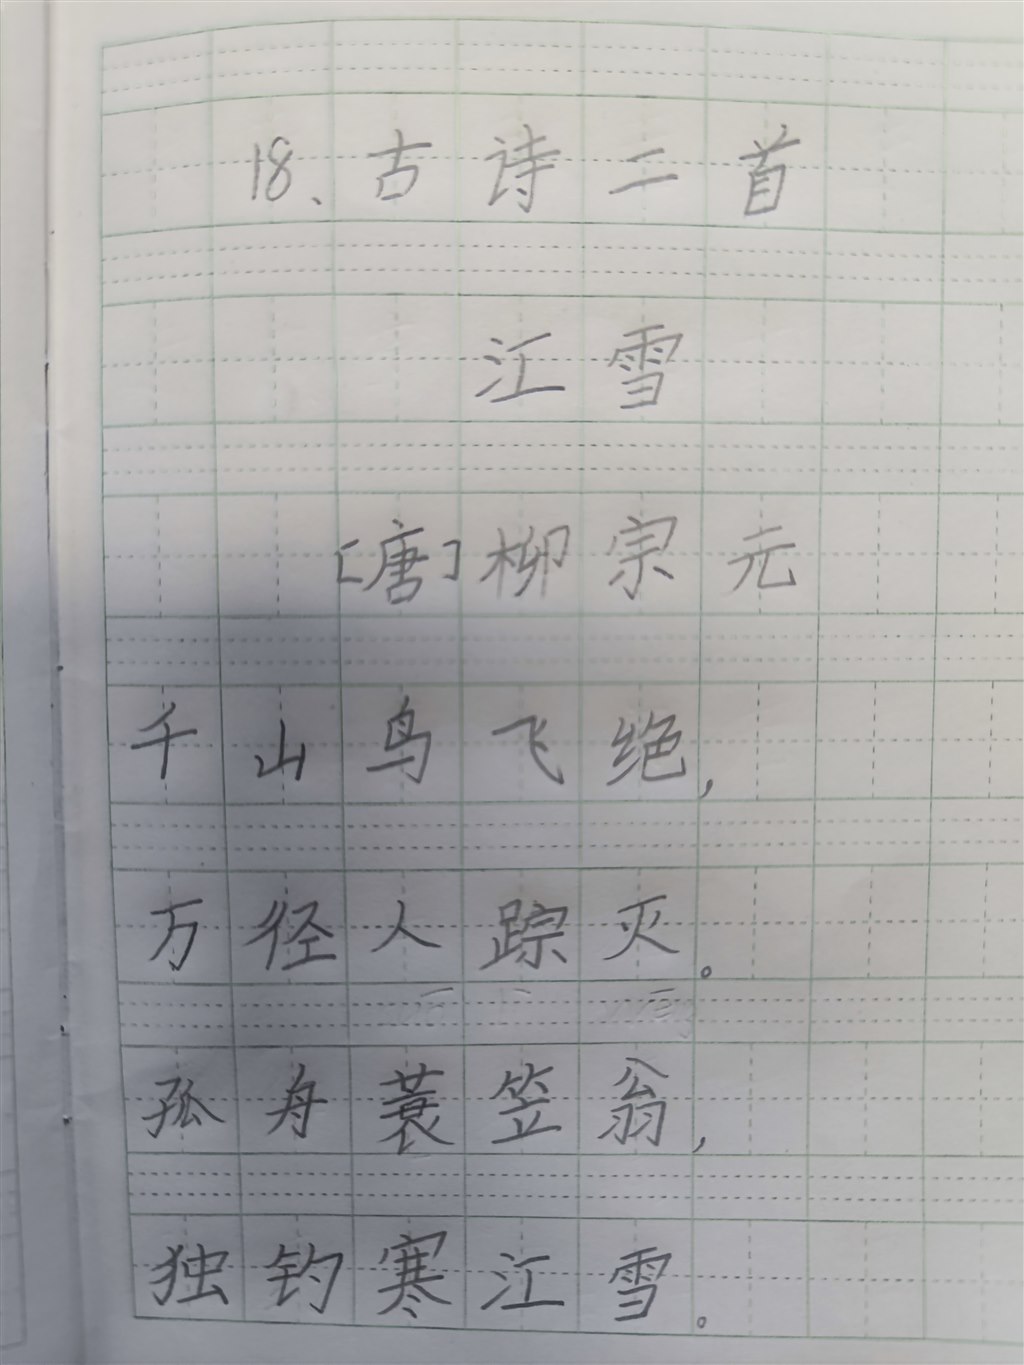 18、古诗二首
江雪
[唐]柳宗元
千山鸟飞绝,
万径人踪灭。
孤舟蓑笠翁,
独钓寒江雪。